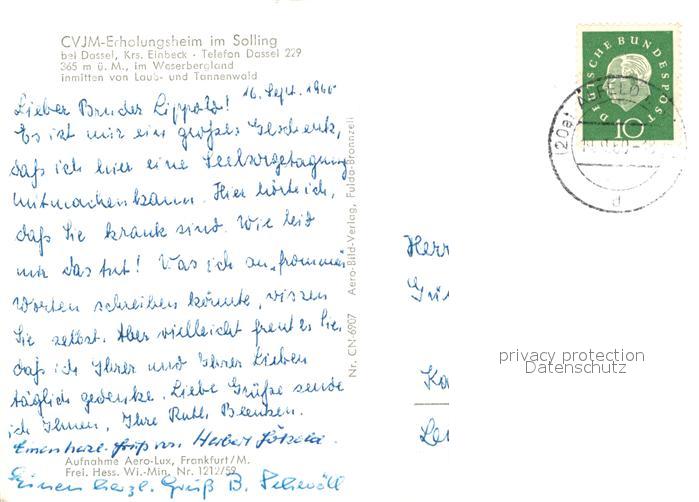 CVJM-Erholungsheim im Solling
bei Dassel, Krs. Einbeck · Telefon Dassel 229
365 m ü. M., im Weserbergland
inmitten von Laub- und Tannenwald
Lieber Bruder Lippold! 16. Sept. 1960
Es ist mir ein großes Geschenk,
daß ich hier eine Seelsorgetagung
mitmachen kann. Hier hörte ich,
daß Sie krank sind. Wie leid
mir das tut! Was ich an „frommen
Worten schreiben könnte, wissen
Sie selbst. Aber vielleicht freut es Sie,
daß ich Ihrer und Ihrer Lieben
täglich gedenke. Liebe Grüße sende
ich Ihnen, Ihre Ruth
Einen herzl. Gruß von Herbert
Aufnahme Aero-Lux, Frankfurt/M.
Frei. Hess. Wi.-Min. Nr. 1212/59
Einen herzl. Gruß B.
Nr. CN-6907 Aero-Bild-Verlag, Fulda-Bronnzell
DEUTSCHE BUNDESPOST
10
(20a) ALFELD
d
Herr
privacy protection
Datenschutz